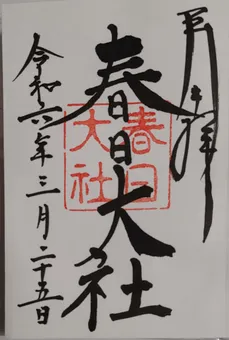 月参拝
春日大社
春日
大社
令和六年三月二十五日